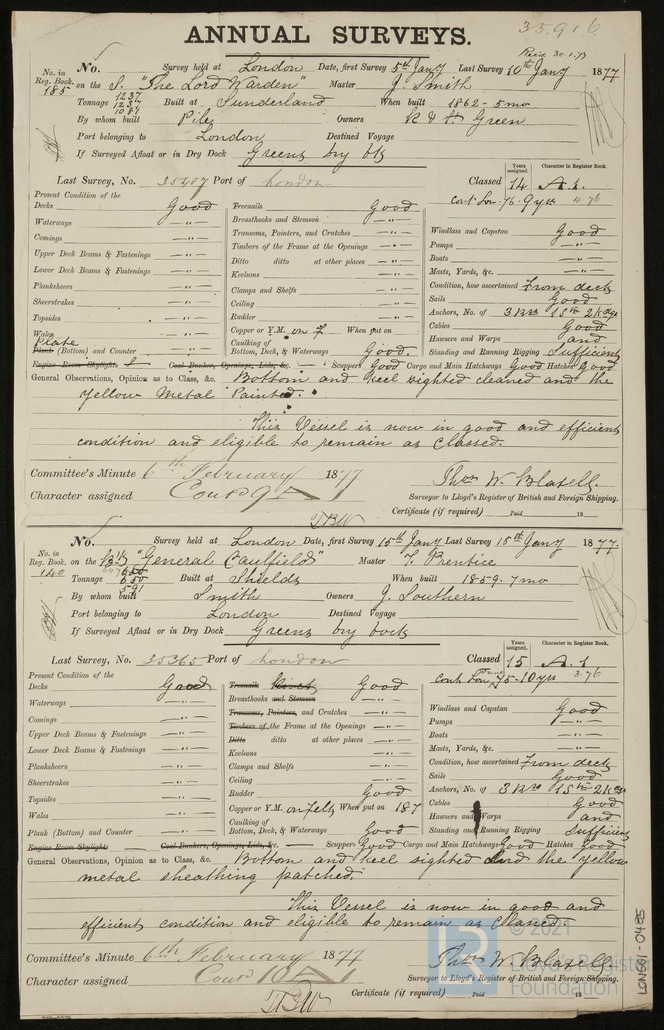 35916
ANNUAL SURVEYS.
Rec'd 30.1.77
No. Survey held at London Date, first Survey 5th Jany Last Survey 10th Jany 1877
No. in Reg. Book. 185 on the S. "The Lord Warden" Master J. Smith
Tonnage 1237 1237 1081 Built at Sunderland When built 1862 - 5mo
By whom built Pile Owners R & H Green
Port belonging to London Destined Voyage
If Surveyed Afloat or in Dry Dock Greens Dry Dk
Last Survey, No. 35407 Port of London Classed Years assigned. 14 Character in Register Book. A.1.
Cont. Lon. 76. 9 yrs 4.76
Present Condition of the
Decks Good
Waterways — " —
Comings — " —
Upper Deck Beams & Fastenings — " —
Lower Deck Beams & Fastenings — " —
Planksheers — " —
Sheerstrakes — " —
Topsides — " —
Wales — " —
Plate
Plank (Bottom) and Counter — " —
Treenails Good
Breasthooks and Stemson — " —
Transoms, Pointers, and Crutches — " —
Timbers of the Frame at the Openings — " —
Ditto ditto at other places — " —
Keelsons — " —
Clamps and Shelfs — " —
Ceiling — " —
Rudder — " —
Copper or Y.M. on F When put on
Caulking of Bottom, Deck, & Waterways Good.
Windlass and Capstan Good
Pumps — " —
Boats — " —
Masts, Yards, &c. — " —
Condition, how ascertained From deck
Sails Good
Anchors, No. of 3 Brs 1 Stm 2 Kedge
Cables Good
Hawsers and Warps and
Standing and Running Rigging Sufficient
Engine Room Skylights Coal Bunker, Openings, Lids, &c. Scuppers Good Cargo and Main Hatchways Good Hatches Good
General Observations, Opinion as to Class, &c. Bottom and keel sighted cleaned and the
yellow metal Painted.
This Vessel is now in good and efficient
condition and eligible to remain as Classed.
Committee's Minute 6th February 1877
Character assigned Contd 9 A
Thos W. Blasell.
Surveyor to Lloyd's Register of British and Foreign Shipping.
Certificate (if required) Paid 18
No. Survey held at London Date, first Survey 15th Jany Last Survey 15th Jany 1877.
No. in Reg. Book. 140 on the "General Caulfield" Master T. Prentice
Tonnage 650 591 Built at Shields When built 1859. 7mo
By whom built Smith Owners J. Southern
Port belonging to London Destined Voyage
If Surveyed Afloat or in Dry Dock Greens Dry Dock
Last Survey, No. 35365 Port of London Classed Years assigned. 15 Character in Register Book. A.1
Cont. Lon. 75 - 10 yrs 3.76
Present Condition of the
Decks Good
Waterways — " —
Comings — " —
Upper Deck Beams & Fastenings — " —
Lower Deck Beams & Fastenings — " —
Planksheers — " —
Sheerstrakes — " —
Topsides — " —
Wales — " —
Plank (Bottom) and Counter — " —
Treenails Good
Breasthooks and Stemson — " —
Transoms, Pointers, and Crutches — " —
Timbers of the Frame at the Openings — " —
Ditto ditto at other places — " —
Keelsons — " —
Clamps and Shelfs — " —
Ceiling — " —
Rudder Good
Copper or Y.M. on felt When put on 187
Caulking of Bottom, Deck, & Waterways Good
Windlass and Capstan Good
Pumps — " —
Boats — " —
Masts, Yards, &c. — " —
Condition, how ascertained From deck
Sails Good
Anchors, No. of 3 Brs 1 Stm 2 Kes
Cables Good
Hawsers and Warps and
Standing and Running Rigging Sufficient
Engine Room Skylights Coal Bunkers, Openings, Lids, &c. Scuppers Good Cargo and Main Hatchways Good Hatches Good
General Observations, Opinion as to Class, &c. Bottom and keel sighted and the yellow
metal sheathing patched.
This Vessel is now in good and
efficient condition and eligible to remain as Classed
Committee's Minute 6th February 1877
Character assigned Contd 10 A 1
Thos W. Blasell
Surveyor to Lloyd's Register of British and Foreign Shipping.
Certificate (if required) Paid 18
© 2021
Lloyd's Register
Foundation
LON661-0485